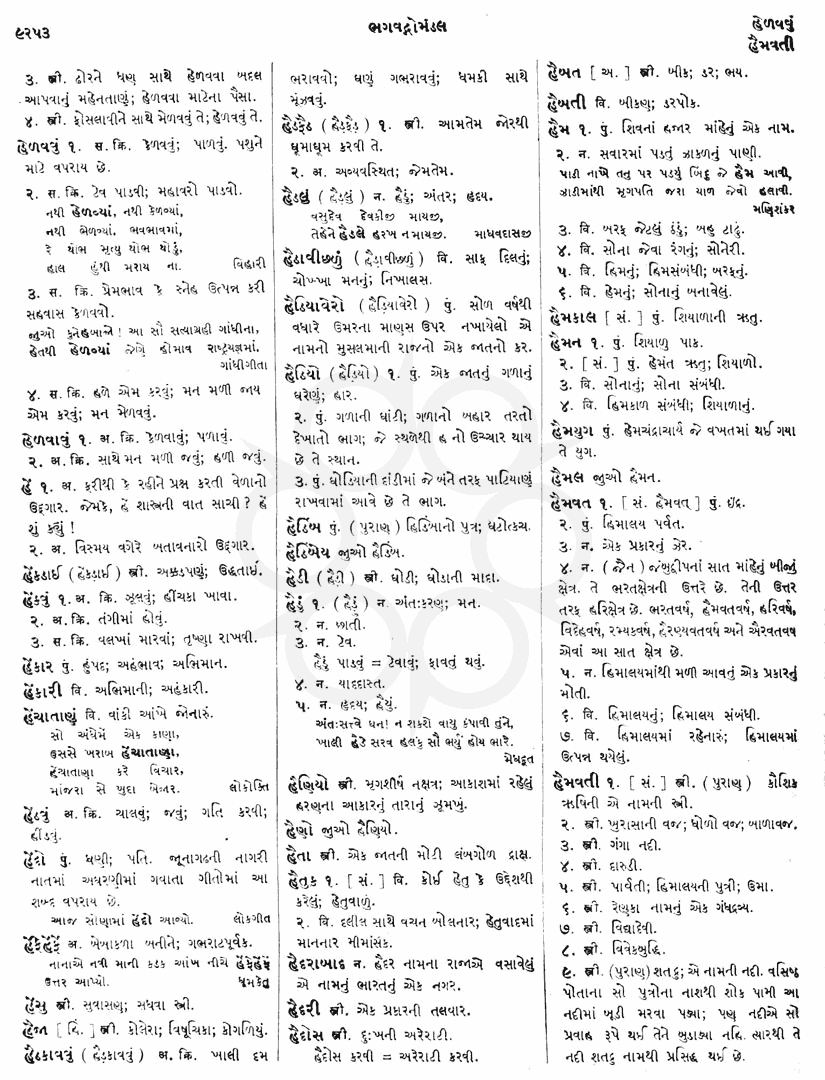 ૯૨૫૩
ભગવદ્ગોમંડલ
હેળવવું
હૈમવતી
૩. સ્ત્રી. ઢોરને ધણ સાથે હેળવવા બદલ
આપવાનું મહેનતાણું; હેળવવા માટેના પૈસા.
૪. સ્ત્રી. ફોસલાવીને સાથે મેળવવું તે; હેળવવું તે.
હેળવવું ૧. સ. ક્રિ. કેળવવું; પાળવું. પશુને
માટે વપરાય છે.
૨. સ. ક્રિ. ટેવ પાડવી; મહાવરો પાડવો.
નથી હેળવ્યાં, નથી કેળવ્યાં,
નથી ભેળવ્યાં. ભવભાવમાં,
રે થોભ મૃત્યુ થોભ થોડું,
હાલ હુંથી મરાય ના. વિહારી
૩. સ. ક્રિ. પ્રેમભાવ કે સ્નેહ ઉત્પન્ન કરી
સહવાસ કેળવવો.
જુઓ કુનેહબાજો! આ સૌ સત્યાગ્રહી ગાંધીના,
હેતથી હેળવ્યાં જેણે હોમાવ રાષ્ટ્રયજ્ઞમાં.
ગાંધીગીતા
૪. સ. ક્રિ. હળે એમ કરવું; મન મળી જાય
એમ કરવું; મન મેળવવું.
હેળવાવું ૧. અ. ક્રિ. કેળવાવું; પળાવું.
૨. અ. ક્રિ. સાથે મન મળી જવું; હળી જવું.
હેં ૧. અ. ફરીથી કે રહીને પ્રશ્ન કરતી વેળાનો
ઉદ્ગાર. જેમકે, હેં શાસ્ત્રની વાત સાચી? હેં
શું કહ્યું!
૨. અ. વિસ્મય વગેરે બતાવનારો ઉદ્ગાર.
હેંકડાઈ (હેંકડાઈ) સ્ત્રી. અક્કડપણું; ઉદ્ધતાઈ.
હેંકવું ૧. અ. ક્રિ. ઝૂલવું; હીંચકા ખાવા.
૨. અ. ક્રિ. તંગીમાં હોવું.
૩. સ. ક્રિ. વલખાં મારવાં; તૃષ્ણા રાખવી.
હેંકાર પું. હુંપદ; અહંભાવ; અભિમાન.
હેંકારી વિ. અભિમાની; અહંકારી.
હેંચાતાણું વિ. વાંકી આંખે જોનારું.
સો અંધેમેં એક કાણા,
ઉસસે ખરાબ હેંચાતાણા,
હેંચાતાણા કરે વિચાર,
માંજરા સે ખુદા બેજાર. લોકોક્તિ
હેંડવું અ. ક્રિ. ચાલવું; જવું; ગતિ કરવી;
હીંડવું.
હેંદો પું. ધણી; પતિ. જૂનાગઢની નાગરી
નાતમાં અઘરણીમાં ગવાતા ગીતોમાં આ
શબ્દ વપરાય છે.
આજ સોણામાં હેંદો આવ્યો. લોકગીત
હેંફેંહેંફેં અ. બેબાકળા બનીને; ગભરાટપૂર્વક.
નાનાએ નત્રી માની કડક આંખ નીચે હેંફેંહેંફેં
ઉત્તર આપ્યો. ધૂમકેતુ
હેંસુ સ્ત્રી. સુવાસણ; સધવા સ્ત્રી.
હૈજા [ હિં. ] સ્ત્રી. કોલેરા; વિષૂચિકા; કોગળિયું.
હૈઠકાવવું (હૈડકાવવું) અ. ક્રિ. ખાલી દમ
ભરાવવો; ઘણું ગભરાવવું; ધમકી સાથે
મૂંઝવવું.
હૈડફૈડ (હૈડફૈડ) ૧. સ્ત્રી. આમતેમ જોરથી
ધૂમાધૂમ કરવી તે.
૨. અ. અવ્યવસ્થિત; જેમતેમ.
હૈડલું (હૈડલું) ન. હૈડું; અંતર; હૃદય.
વસુદેવ દેવકીજી માયજી,
તેહેને હૈડલે હરખ ન માયજી. માધવદાસજી
હૈડાવીછળું (હૈડાવીછળું) વિ. સાફ દિલનું;
ચોખ્ખા મનનું; નિખાલસ.
હૈડિયાવેરો (હૈડિયાવેરો) પું. સોળ વર્ષથી
વધારે ઉમરના માણસ ઉપર નખાયેલો એ
નામનો મુસલમાની રાજનો એક જાતનો કર.
હૈડિયો (હૈડિયો) ૧. પું. એક જાતનું ગળાનું
ઘરેણું; હાર.
૨. પું. ગળાની ઘાંટી; ગળાનો બહાર તરતો
દેખાતો ભાગ; જે સ્થળેથી હ નો ઉચ્ચાર થાય
છે તે સ્થાન.
૩. પું. ઘોડિયાની દાંડીમાં જે બંને તરફ પાટિયાણું
રાખવામાં આવે છે તે ભાગ.
હૈડિંબ પું. (પુરાણ) હિડિંબાનો પુત્ર; ઘટોત્કચ.
હૈડિંબેય જુઓ હૈડિંબ.
હૈડી (હૈડી) સ્ત્રી. ઘોડી; ઘોડાની માદા.
હૈડું ૧. (હૈડું) ન. અંતઃકરણ; મન.
૨. ન. છાતી.
૩. ન. ટેવ.
હૈડું પાડવું = ટેવાવું; ફાવતું થવું.
૪. ન. યાદદાસ્ત.
૫. ન. હૃદય; હૈયું.
અંતઃસત્ત્વે ધન! ન શકશે વાયુ કંપાવી તુંને,
ખાલી હૈડે સરવ હલકું સૌ ભર્યું હોય ભારે.
મેઘદૂત
હૈણિયો સ્ત્રી. મૃગશીર્ષ નક્ષત્ર; આકાશમાં રહેલું
હરણના આકારનું તારાનું ઝૂમખું.
હૈણો જુઓ હૈણિયો.
હૈતા સ્ત્રી. એક જાતની મોટી લંબગોળ દ્રાક્ષ.
હૈતુક ૧. [ સં. ] વિ. કોઈ હેતુ કે ઉદ્દેશથી
કરેલું; હેતુવાળું.
૨. વિ. દલીલ સાથે વચન બોલનાર; હેતુવાદમાં
માનનાર મીમાંસક.
હૈદરાબાદ ન. હૈદર નામના રાજાએ વસાવેલું
એ નામનું ભારતનું એક નગર.
હૈદરી સ્ત્રી. એક પ્રકારની તલવાર.
હૈદોસ સ્ત્રી. દુઃખની અરેરાટી.
હૈદોસ કરવી = અરેરાટી કરવી.
હૈબત [ અ. ] સ્ત્રી. બીક; ડર; ભય.
હૈબતી વિ. બીકણ; ડરપોક.
હૈમ ૧. પું. શિવનાં હજાર માંહેનું એક નામ.
૨. ન. સવારમાં પડતું ઝાકળનું પાણી.
પાડી નાખે તનુ પર પડ્યું બિંદુ જે હૈમ આવી,
ઝાડીમાંથી મૃગપતિ જરા યાળ જેવો હલાવી.
મણિશંકર
૩. વિ. બરફ જેટલું ઠંડું; બહુ ટાઢું.
૪. વિ. સોના જેવા રંગનું; સોનેરી.
૫. વિ. હિમનું; હિમસંબંધી; બરફનું.
૬. વિ. હેમનું; સોનાનું બનાવેલું.
હૈમકાલ [ સં. ] પું. શિયાળાની ઋતુ.
હૈમન ૧. પું. શિયાળુ પાક.
૨. [ સં. ] પું. હેમંત ઋતુ; શિયાળો.
૩. વિ. સોનાનું; સોના સંબંધી.
૪. વિ. હિમકાળ સંબંધી; શિયાળાનું.
હૈમયુગ પું. હેમચંદ્રાચાર્ય જે વખતમાં થઈ ગયા
તે યુગ.
હૈમલ જુઓ હૈમન.
હૈમવત ૧. [ સં. હૈમવત્ ] પું. ઇંદ્ર.
૨. પું. હિમાલય પર્વત.
૩. ન. એક પ્રકારનું ઝેર.
૪. ન. (જૈન) જંબુદ્વીપનાં સાત માંહેનું બીજું
ક્ષેત્ર. તે ભરતક્ષેત્રની ઉત્તરે છે. તેની ઉત્તર
તરફ હરિક્ષેત્ર છે. ભરતવર્ષ, હૈમવતવર્ષ, હરિવર્ષ,
વિદેહવર્ષ, રમ્યકવર્ષ, હૈરણ્યવતવર્ષ અને ઐરવતવર્ષ
એવાં આ સાત ક્ષેત્ર છે.
૫. ન. હિમાલયમાંથી મળી આવતું એક પ્રકારનું
મોતી.
૬. વિ. હિમાલયનું; હિમાલય સંબંધી.
૭. વિ. હિમાલયમાં રહેનારું; હિમાલયમાં
ઉત્પન્ન થયેલું.
હૈમવતી ૧. [ સં. ] સ્ત્રી. (પુરાણ) કૌશિક
ઋષિની એ નામની સ્ત્રી.
૨. સ્ત્રી. ખુરાસાની વજ; ધોળો વજ; બાળાવજ.
૩. સ્ત્રી. ગંગા નદી.
૪. સ્ત્રી. દારુડી.
૫. સ્ત્રી. પાર્વતી; હિમાલયની પુત્રી; ઉમા.
૬. સ્ત્રી. રેણુકા નામનું એક ગંધદ્રવ્ય.
૭. સ્ત્રી. વિદ્યાદેવી.
૮. સ્ત્રી. વિવેકબુદ્ધિ.
૯. સ્ત્રી. (પુરાણ) શતદ્રુ; એ નામની નદી. વસિષ્ઠ
પોતાના સો પુત્રોના નાશથી શોક પામી આ
નદીમાં બૂડી મરવા પડ્યા; પણ નદીએ સો
પ્રવાહ રૂપે થઈ તેને બુડાડ્યા નહિ. ત્યારથી તે
નદી શતદ્રુ નામથી પ્રસિદ્ધ થઈ છે.